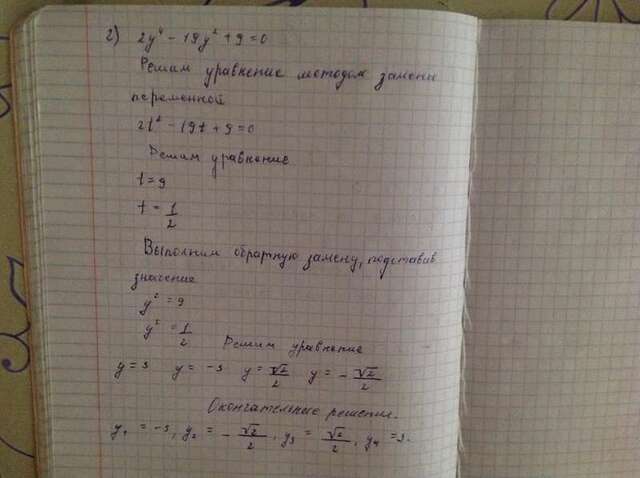 г) 2y⁴ - 19y² + 9 = 0
Решим уравнение методом замены
переменной
2t² - 19t + 9 = 0
Решим уравнение
t = 9
t = 1/2
Выполним обратную замену, подставив
значение
y² = 9
y² = 1/2
Решим уравнение
y = 3 y = -3 y = √2/2 y = -√2/2
Окончательные решения.
y₁ = -3, y₂ = -√2/2, y₃ = √2/2, y₄ = 3.